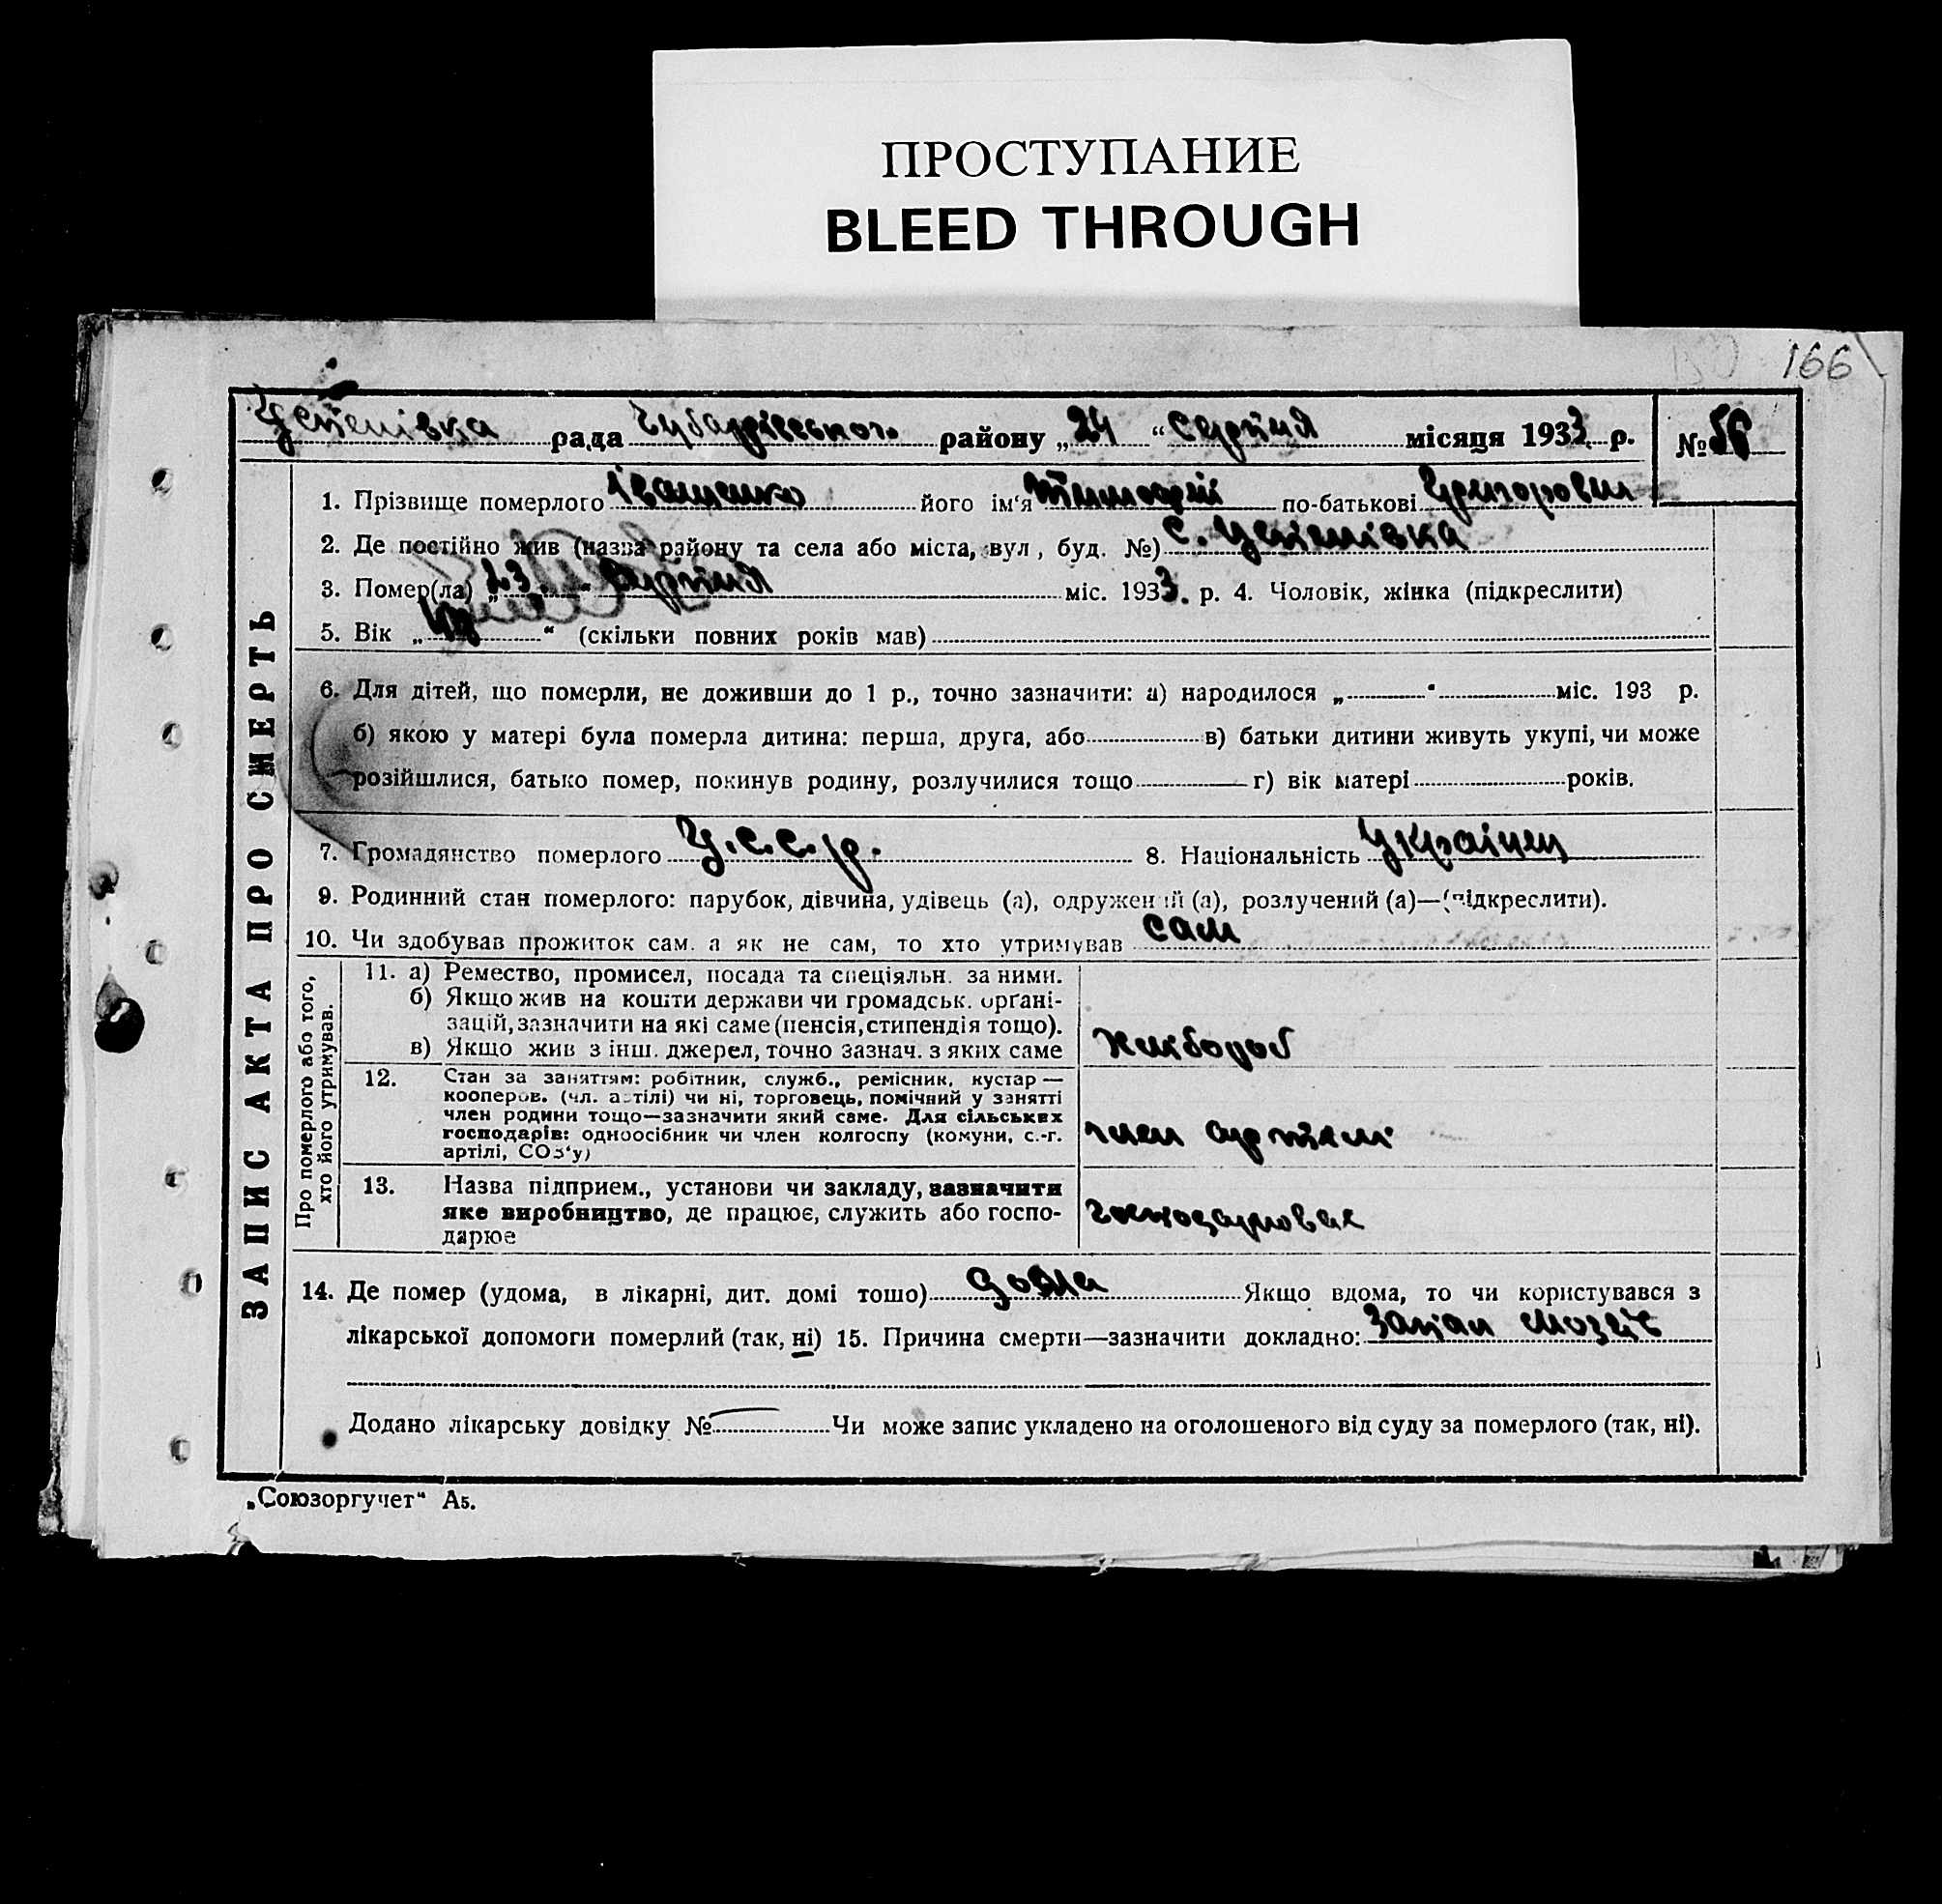 ПРОСТУПАНИЕ
BLEED THROUGH
166
Успенівка рада Чубарівського району „24“ серпня місяця 1933 р. № 56
1. Прізвище померлого Іващенко його ім‘я Тимофій по-батькові Григорович
2. Де постійно жив (назва району та села або міста, вул, буд. №) с. Успенівка
3. Помер(ла) „23“ серпня міс. 1933. р. 4. Чоловік, жінка (підкреслити)
5. Вік „ “ (скільки повних років мав)
6. Для дітей, що померли, не доживши до 1 р., точно зазначити: а) народилося „ “ міс. 193 р.
б) якою у матері була померла дитина: перша, друга, або в) батьки дитини живуть укупі, чи може
розійшлися, батько помер, покинув родину, розлучилися тощо г) вік матері років.
7. Громадянство померлого У.С.С.р. 8. Національність Українец
9. Родинний стан померлого: парубок, дівчина, удівець (а), одружений (а), розлучений (а)—(підкреслити).
10. Чи здобував прожиток сам. а як не сам, то хто утримував сам
ЗАПИС АКТА ПРО СМЕРТЬ
Про померлого або того,
хто його утримував.
11. а) Ремество, промисел, посада та спеціяльн. за ними.
б) Якщо жив на кошти держави чи громадськ. орґані-
зацій, зазначити на які саме (пенсія, стипендія тощо).
в) Якщо жив з інш. джерел, точно зазнач. з яких саме
12. Стан за заняттям: робітник, служб., ремісник, кустар—
кооперов. (чл. артілі) чи ні, торговець, помічний у занятті
член родини тощо—зазначити який саме. Для сільських
господарів: одноосібник чи член колгоспу (комуни, с.-г.
артілі, СОЗ‘у)
член артелі
13. Назва підприєм., установи чи закладу, зазначити
яке виробництво, де працює, служить або госпо-
дарює
господарював
14. Де помер (удома, в лікарні, дит. домі тошо) дома Якщо вдома, то чи користувався з
лікарської допомоги померлий (так, ні) 15. Причина смерти—зазначити докладно: Запал мозгів
Додано лікарську довідку № Чи може запис укладено на оголошеного від суду за померлого (так, ні).
„Союзоргучет“ А5.